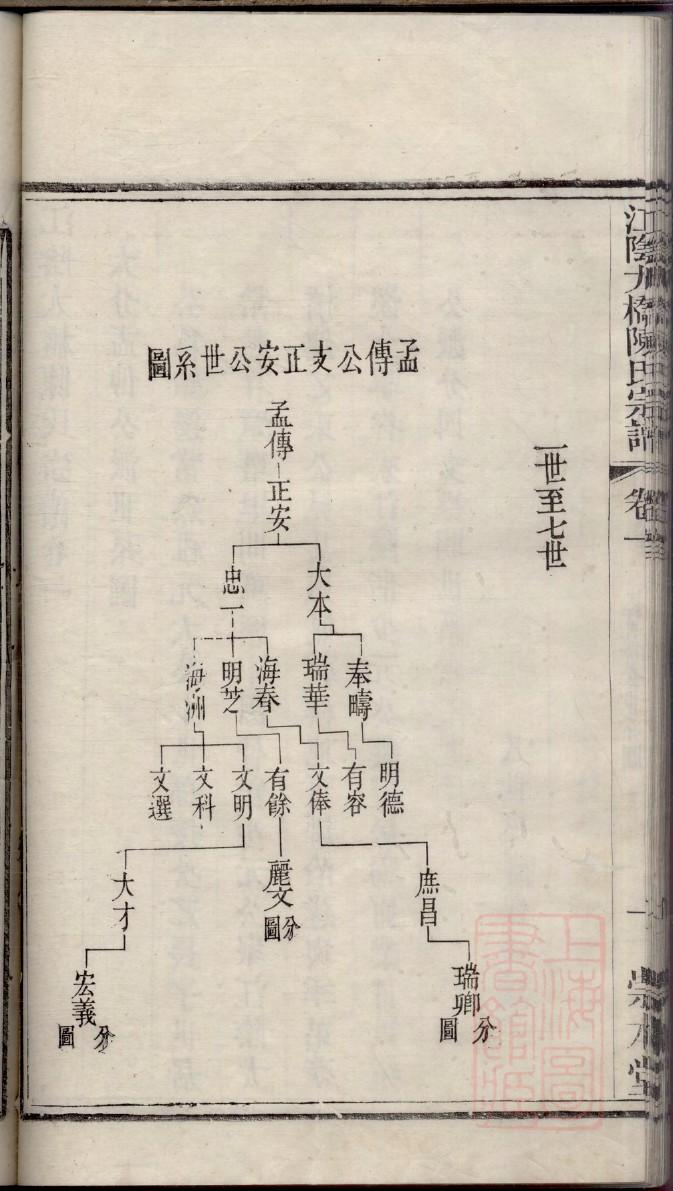 江陰九橋陳氏宗譜
卷一
一世至七世
孟傳公支正安公世系圖
孟傳
正安
大本
忠一
奉疇
瑞華
海春
明芝
海洲
明德
有容
文俸
有餘
文明
文科
文選
庶昌
麗文
分圖
大才
瑞卿
分圖
宏義
分圖
上海圖書館藏